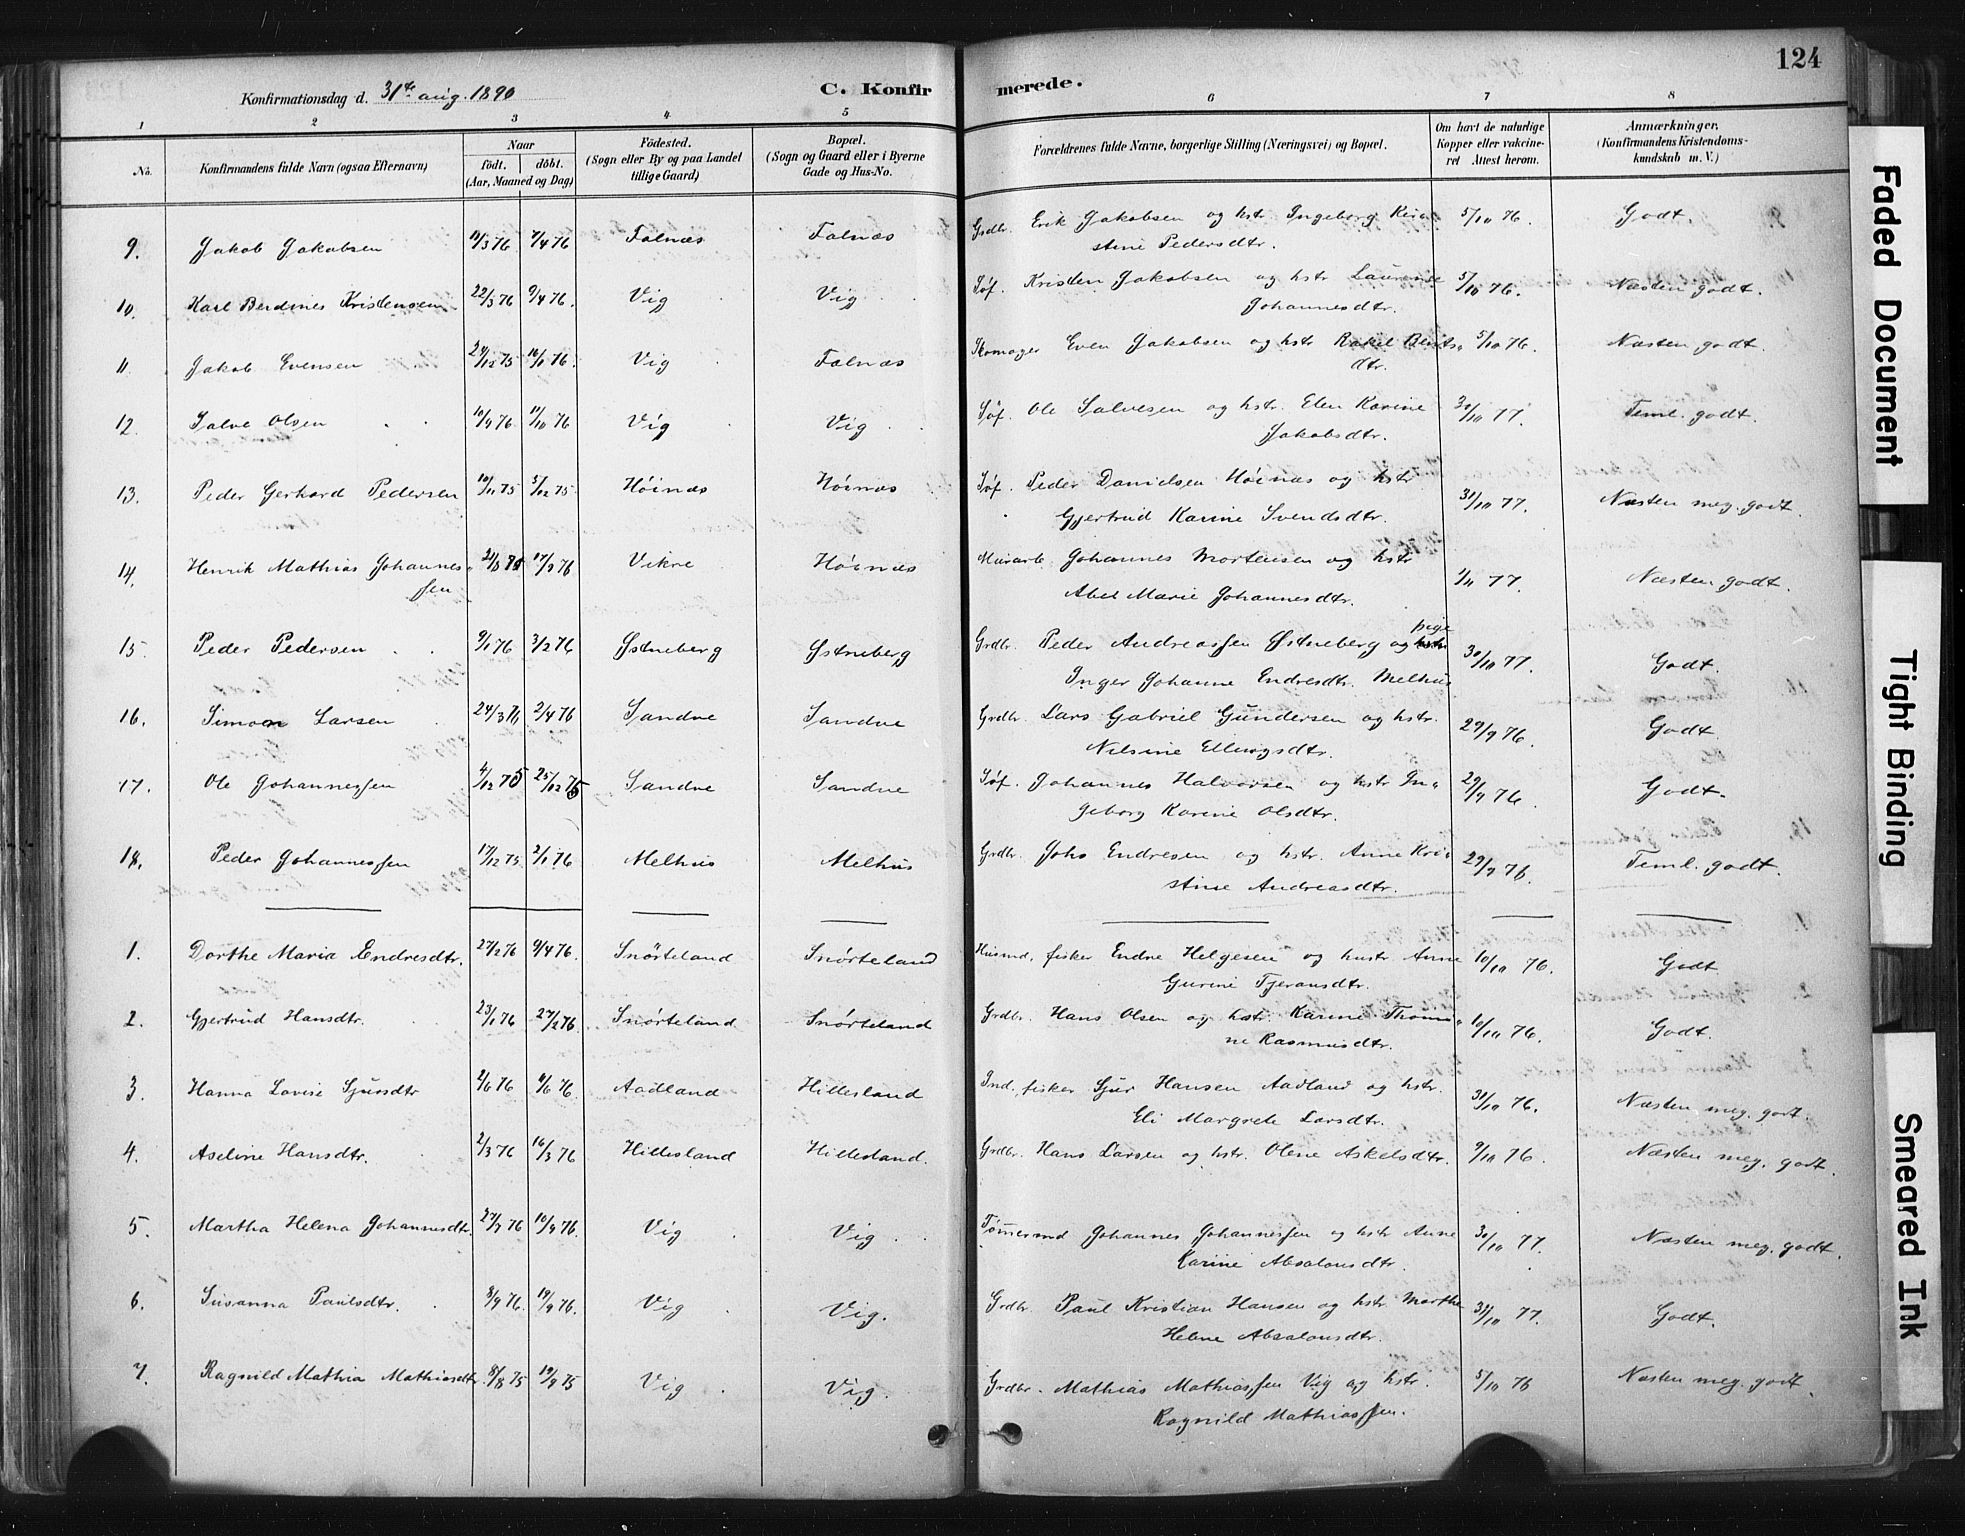 124
Konfirmationsdag d. 31te aug. 1890
C. Konfirmerede.
1 2 3 4 5 6 7 8
No. Konfirmandens fulde Navn (ogsaa Efternavn) Naar født. døbt. (Aar, Maaned og Dag) Fødested. (Sogn eller By og paa Landet tillige Gaard) Bopæl. (Sogn og Gaard eller i Byerne Gade og Hus-No. Forældrenes fulde Navne, borgerlige Stilling (Næringsvei) og Bopæl. Om havt de naturlige Kopper eller vakcineret Attest herom. Anmærkninger. (Konfirmandens Kristendomskundskab m. V.)
9. Jakob Jakobsen 11/3 76 7/4 76 Falnæs Falnæs Grdbr. Erik Jakobsen og hstr. Ingeborg Kri- 5/10 76. Godt.
stine Pedersdtr.
10. Karl Berdines Kristensen 22/3 76 9/4 76. Vig Vig Søf. Kristen Jakobsen og hstr Laurense 5/10 76. Næsten godt.
Johannesdtr.
11. Jakob Evensen 24/12 75 16/1 76. Vig Falnæs Skomager Even Jakobsen og hstr Rakel Berits- 5/10 76. Næsten godt.
dtr.
12. Salve Olsen 10/9 76. 11/10 76 Vig Vig Søf. Ole Salvesen og hstr. Elen Karine 30/10 77. Teml. godt.
Jakobsdtr.
13. Peder Gerhard Pedersen 10/11 75 5/12 75. Høinæs Høinæs Søf. Peder Danielsen Høinæs og hstr 31/10 77. Næsten meg. godt.
Gjertrud Karine Svendsdtr.
14. Henrik Mathias Johannes- 17/9 76 Vikre Høinæs Murarb. Johannes Mortensen og hstr 1/11 77. Næsten godt.
sen Abel Marie Johannesdtr.
15. Peder Pedersen 9/1 76 3/2 76 Østneberg Østneberg Grdbr. Peder Andreassen Østneberg og pige 30/10 77. Godt.
Inger Johanne Endresdtr. Melhus
16. Simon Larsen 24/3 76 2/4 76 Sandve Sandve Grdbr. Lars Gabriel Gundersen og hstr. 29/9 76. Godt.
Nilsine Ellingsdtr.
17. Ole Johannessen 4/12 75 25/12 75 Sandve Sandve Søf. Johannes Halvorsen og hstr In- 29/9 76. Godt.
geborg Karine Olsdtr.
18. Peder Johannessen 17/12 75 2/1 76 Melhus Melhus Grdbr. Johs Endresen og hstr. Anne Kri- 29/9 76. Teml. godt.
stine Andreasdtr.
1. Dorthe Maria Endresdtr. 27/2 76 9/4 76. Snørteland Snørteland Husmd, fisker Endre Helgesen og hustr Anne 10/10 76. Godt
Gurine Tjeransdtr.
2. Gjertrud Hansdtr. 23/1 76 27/2 76 Snørteland Snørteland Grdbr. Hans Olsen og hstr. Karine Thomi- 10/10 76. Godt.
ne Rasmusdtr.
3. Hanna Lovise Sjursdtr 2/6 76 6/6 76. Aadland Hillesland Ind, fisker Sjur Hansen Aadland og hstr. 31/10 76. Næsten meg. godt.
Eli Margrete Larsdtr.
4. Aseline Hansdtr. 2/3 76 16/3 76 Hillesland Hillesland. Grdbr. Hans Larsen og hstr. Olene Askelsdtr. 9/10 76. Næsten meg. godt.
5. Martha Helena Johannesdtr. 27/7 76 10/9 76. Vig Vig Tømermd Johannes Johannessen og hstr Anne 30/10 77. Næsten meg. godt.
Karine Absalonsdtr.
6. Susanna Paulsdtr. 8/9 76. 19/9 76. Vig Vig. Grdbr. Paul Kristian Hansen og hstr Marthe 31/10 77. Godt.
Helene Absalonsdtr.
7. Ragnild Mathia Mathiasdtr. 8/8 75 19/9 75 Vig Vig. Grdbr. Mathias Mathiassen Vig og hstr. 5/10 76 Næsten meg. godt.
Ragnild Mathiassen.
Faded Document
Tight Binding
Smeared Ink